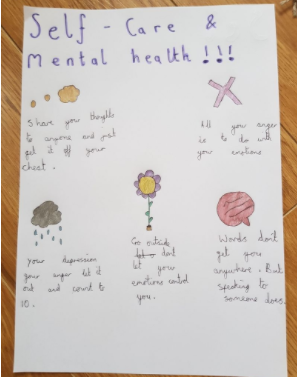 Self - Care &
Mental health !!!
Share your thoughts
to anyone and just
get it off your
chest.
All your anger
is to do with
your emotions
Your depression
your anger let it
out and count to
10.
Go outside
don't
let your
emotions control
you.
Words don't
get you
anywhere. But
speaking to
someone does.